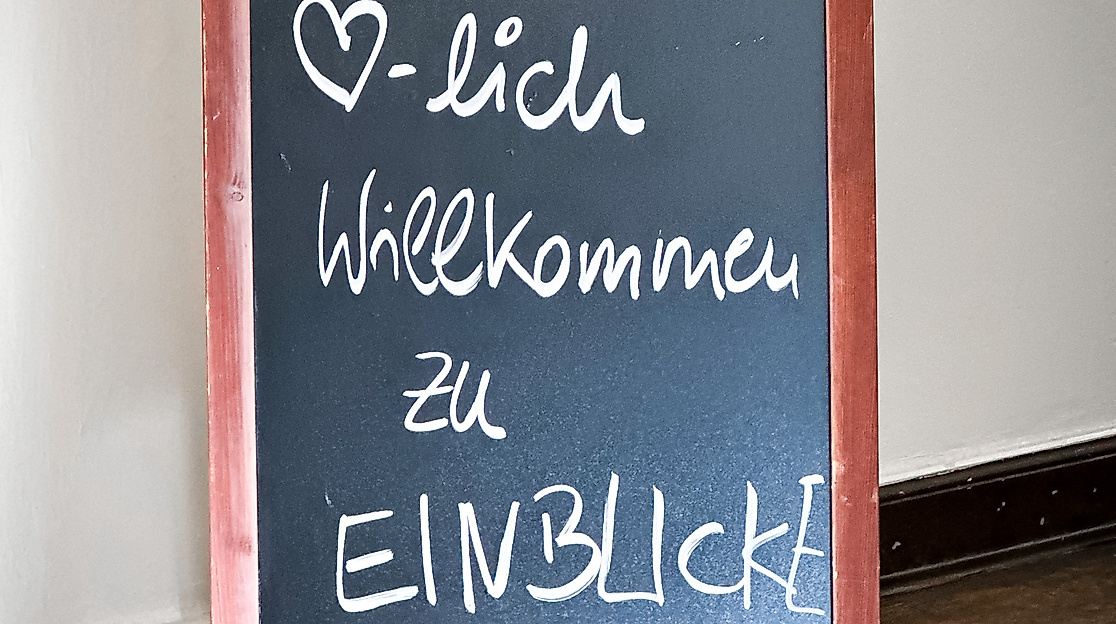 ♡-lich
Willkommen
zu
EINBLICKE